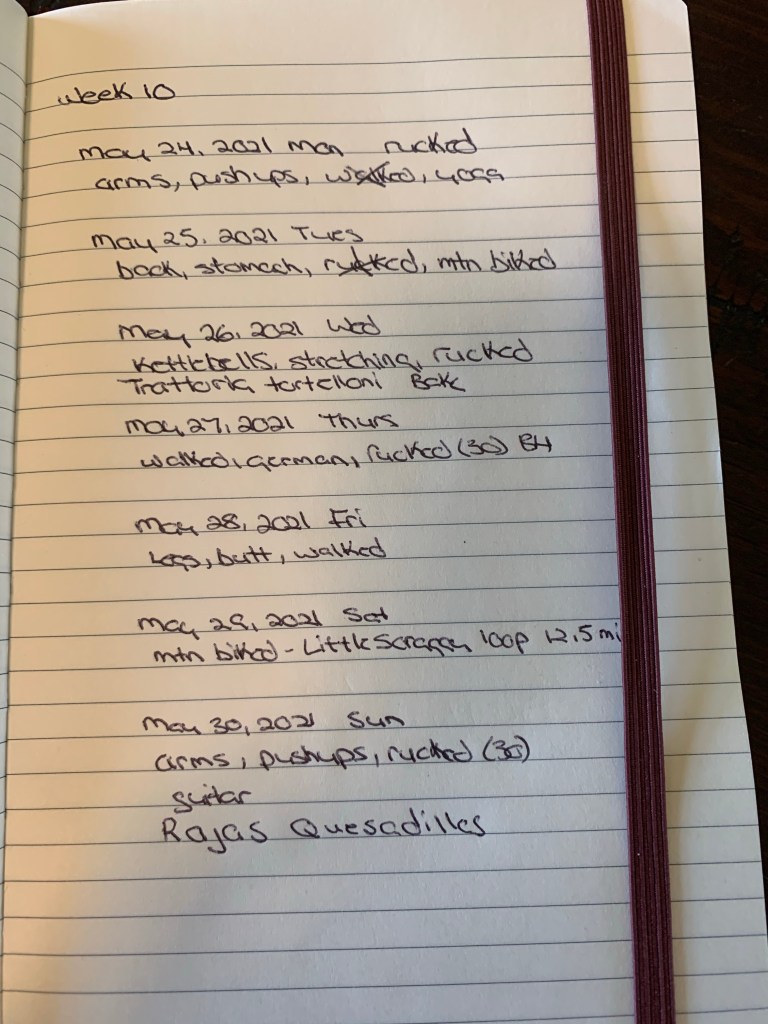 Week 10
May 24, 2021 Mon rucked
arms, pushups, walked, yoga
May 25, 2021 Tues
back, stomach, rucked, mtn biked
May 26, 2021 Wed
Kettlebells, stretching, rucked
Trattoria tortelloni
May 27, 2021 Thurs
walked, german, rucked (30) BH
May 28, 2021 Fri
legs, butt, walked
May 29, 2021 Sat
mtn biked - Little Scraggy loop 12.5 mi
May 30, 2021 Sun
arms, pushups, rucked (30)
guitar
Rajas Quesadillas